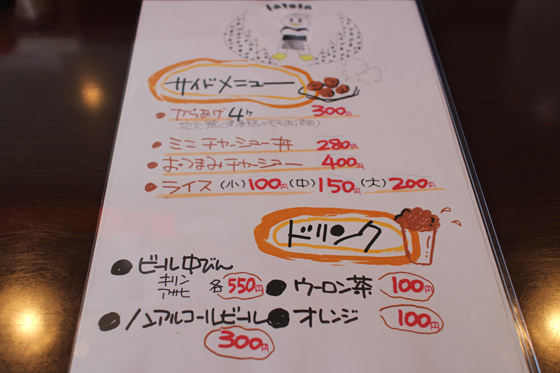 lalala
サイドメニュー
からあげ 4ヶ 300円
ミニチャーシュー丼 280円
おつまみチャーシュー 400円
ライス (小)100円 (中)150円 (大)200円
ドリンク
ビール中びん
キリン
アサヒ 各550円
ウーロン茶 100円
ノンアルコールビール 300円
オレンジ 100円